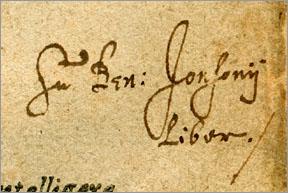 Sū Ben: Jonsonij
Liber.
ntelligere